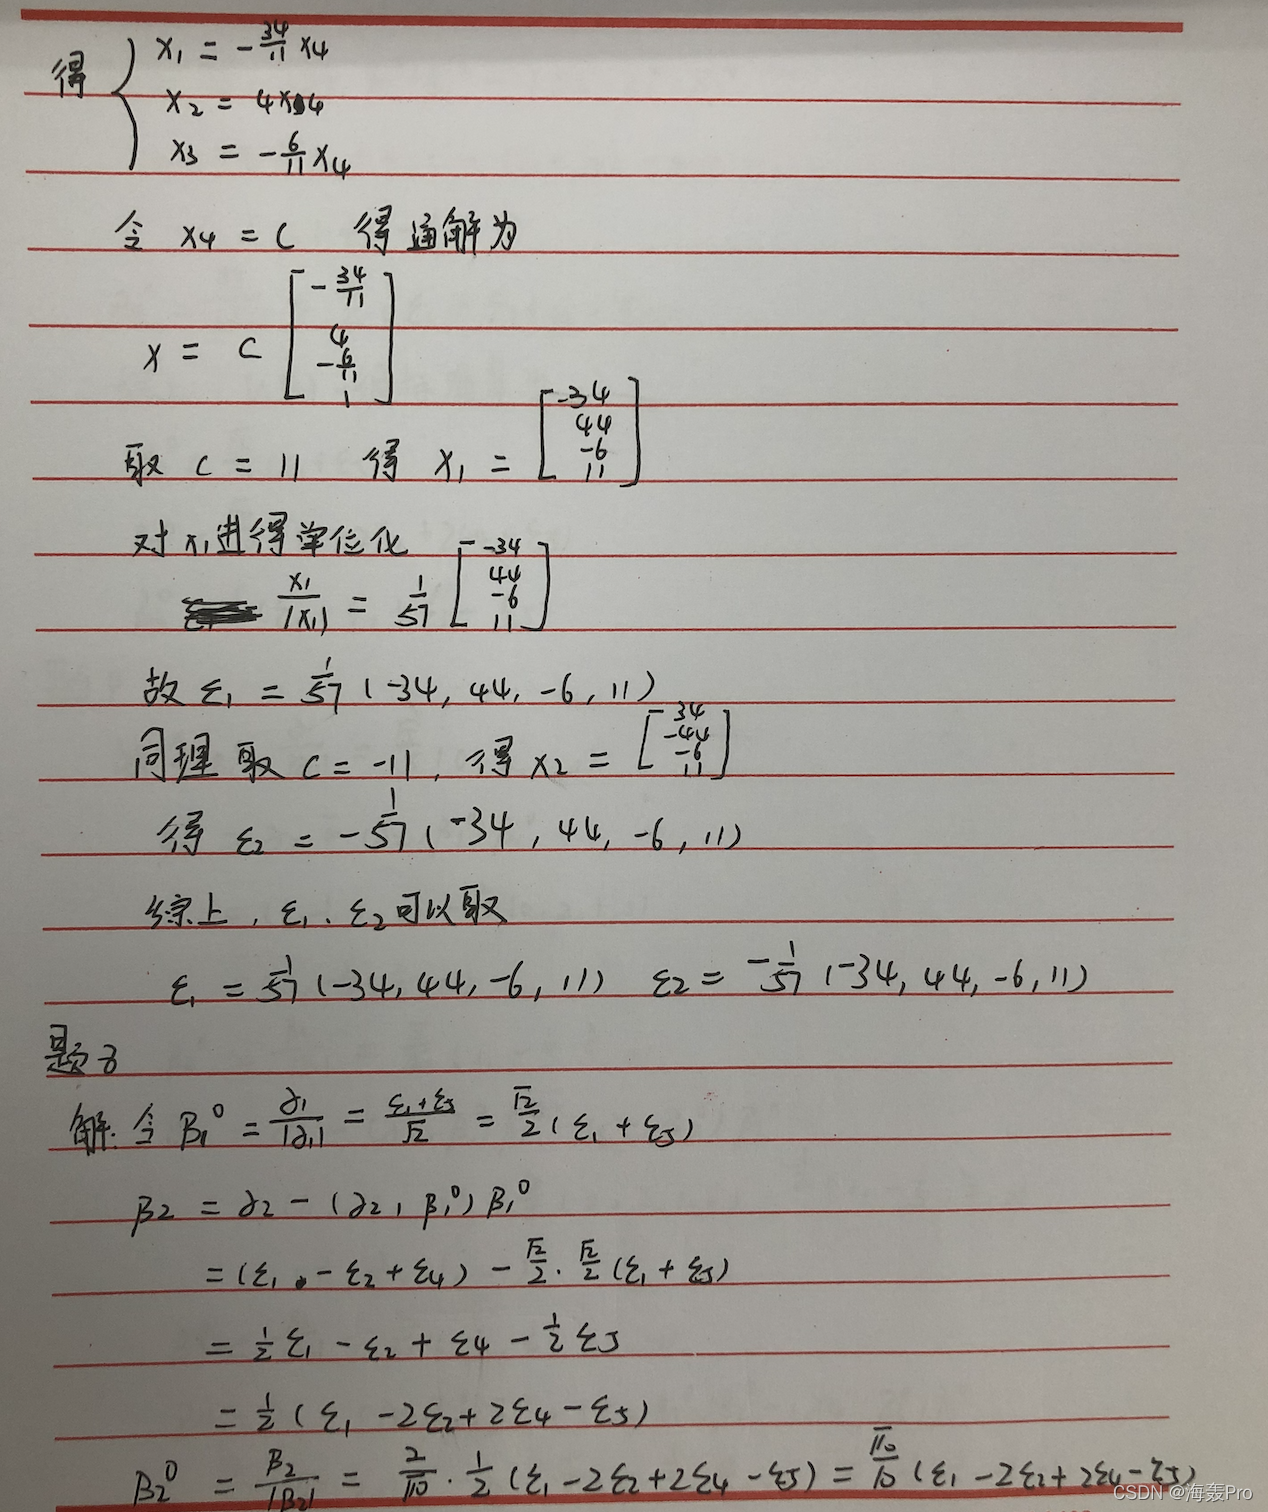 得 { x₁ = -34/11 x₄
x₂ = 4x₄
x₃ = -6/11 x₄
令 x₄ = c 得通解为
x = c [-34/11, 4, -6/11, 1]
取 c = 11 得 x₁ = [-34, 44, -6, 11]
对 x₁进得单位化
x₁/|x₁| = 1/57 [-34, 44, -6, 11]
故 ε₁ = 1/57 (-34, 44, -6, 11)
同理 取 c = -11, 得 x₂ = [34, -44, -6, 11]
得 ε₂ = -1/57 (-34, 44, -6, 11)
综上, ε₁、ε₂可以取
ε₁ = 1/57 (-34, 44, -6, 11) ε₂ = -1/57 (-34, 44, -6, 11)
解: 令 β₁⁰ = ∂₁/|∂₁| = (ε₁+ε₅)/√2 = √2/2 (ε₁ + ε₅)
β₂ = ∂₂ - (∂₂, β₁⁰) β₁⁰
= (ε₁ - ε₂ + ε₄) - √2/2 · √2/2 (ε₁ + ε₅)
= 1/2 ε₁ - ε₂ + ε₄ - 1/2 ε₅
= 1/2 (ε₁ - 2ε₂ + 2ε₄ - ε₅)
β₂⁰ = β₂/|β₂| = 2/√10 · 1/2 (ε₁ - 2ε₂ + 2ε₄ - ε₅) = √10/10 (ε₁ - 2ε₂ + 2ε₄ - ε₅)
CSDN @海轰Pro